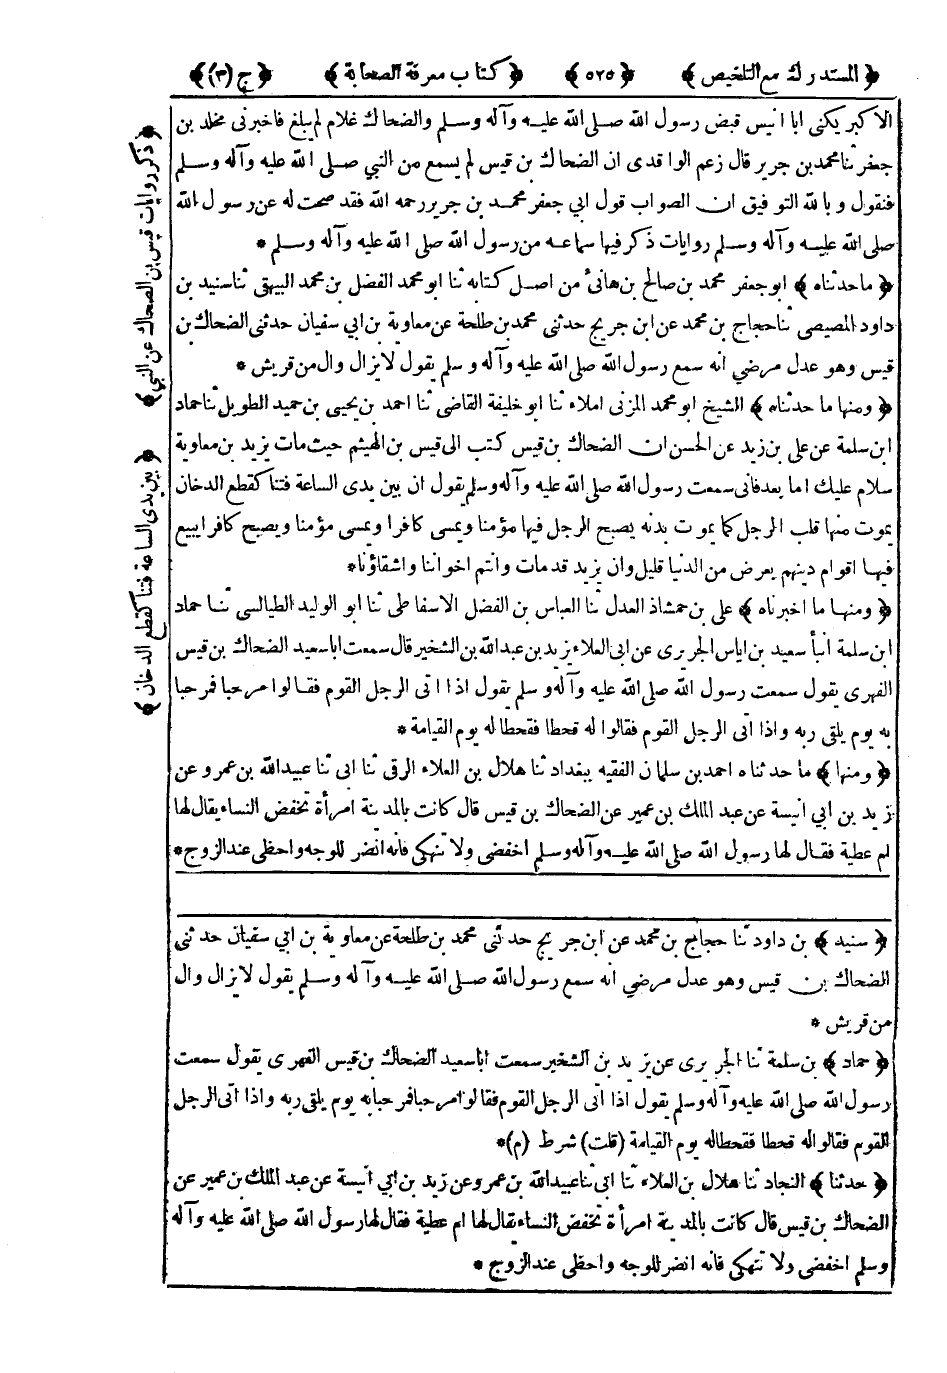 ﴿ المستدرك مع التلخيص ﴾ ﴿ ٥٢٥ ﴾ ﴿ كتاب معرفة الصحابة ﴾ ﴿ ج (٣) ﴾
الاكبر يكنى ابا انيس قبض رسول الله صلى الله عليه وآله وسلم والضحاك غلام لم يبلغ فاخبرنى مخلد بن
جعفر ثنا محمد بن جرير قال زعم الواقدى ان الضحاك بن قيس لم يسمع من النبي صلى الله عليه وآله وسلم
فنقول وبالله التوفيق ان الصواب قول ابي جعفر محمد بن جرير رحمه الله فقد صحت له عن رسول الله
صلى الله عليه وآله وسلم روايات ذكر فيها سماعه من رسول الله صلى الله عليه وآله وسلم *
﴿ ما حدثناه ﴾ ابو جعفر محمد بن صالح بن هانئ من اصل كتابه ثنا ابو محمد الفضل بن محمد البيهقى ثنا سنيد بن
داود المصيصى ثنا حجاج بن محمد عن ابن جريج حدثنى محمد بن طلحة عن معاوية بن ابي سفيان حدثنى الضحاك بن
قيس وهو عدل مرضي انه سمع رسول الله صلى الله عليه وآله وسلم يقول لا يزال وال من قريش *
﴿ ومنها ما حدثناه ﴾ الشيخ ابو محمد المزنى املاء ثنا ابو خليفة القاضى ثنا احمد بن يحيى بن حميد الطويل ثنا حماد
ابن سلمة عن على بن زيد عن الحسن ان الضحاك بن قيس كتب الى قيس بن الهيثم حيث مات يزيد بن معاوية
سلام عليك اما بعد فانى سمعت رسول الله صلى الله عليه وآله وسلم يقول ان بين يدى الساعة فتنا كقطع الدخان
يموت منها قلب الرجل كما يموت بدنه يصبح الرجل فيها مؤمنا ويمسى كافرا ويمسى مؤمنا ويصبح كافرا يبيع
فيها اقوام دينهم بعرض من الدنيا قليل وان يزيد قد مات وانتم اخواننا واشقاؤنا *
﴿ ومنها ما اخبرناه ﴾ على بن حمشاذ العدل ثنا العباس بن الفضل الاسفاطى ثنا ابو الوليد الطيالسى ثنا حماد
ابن سلمة انبأ سعيد بن اياس الجريرى عن ابى العلاء يزيد بن عبد الله بن الشخير قال سمعت ابا سعيد الضحاك بن قيس
الفهرى يقول سمعت رسول الله صلى الله عليه وآله وسلم يقول اذا اتى الرجل القوم فقالوا مرحبا فمرحبا
به يوم يلقى ربه واذا اتى الرجل القوم فقالوا له قحطا فقحطا له يوم القيامة *
﴿ ومنها ﴾ ما حدثناه احمد بن سلمان الفقيه ببغداد ثنا هلال بن العلاء الرقى ثنا ابى ثنا عبيد الله بن عمرو عن
زيد بن ابي انيسة عن عبد الملك بن عمير عن الضحاك بن قيس قال كانت بالمدينة امرأة تخفض النساء يقال لها
ام عطية فقال لها رسول الله صلى الله عليه وآله وسلم اخفضى ولا تنهكى فانه انضر للوجه واحظى عند الزوج *
﴿ سنيد ﴾ بن داود ثنا حجاج بن محمد عن ابن جريج حدثنى محمد بن طلحة عن معاوية بن ابي سفيان حدثنى
الضحاك بن قيس وهو عدل مرضي انه سمع رسول الله صلى الله عليه وآله وسلم يقول لا يزال وال
من قريش *
﴿ حماد ﴾ بن سلمة ثنا الجريرى عن يزيد بن الشخير سمعت ابا سعيد الضحاك بن قيس الفهرى يقول سمعت
رسول الله صلى الله عليه وآله وسلم يقول اذا اتى الرجل القوم فقالوا مرحبا فمرحبا به يوم يلقى ربه واذا اتى الرجل
القوم فقالوا له قحطا فقحطا له يوم القيامة (قلت) شرط (م) *
﴿ حدثنا ﴾ النجاد ثنا هلال بن العلاء ثنا ابى ثنا عبيد الله بن عمرو عن زيد بن ابي انيسة عن عبد الملك بن عمير عن
الضحاك بن قيس قال كانت بالمدينة امرأة تخفض النساء يقال لها ام عطية فقال لها رسول الله صلى الله عليه وآله
وسلم اخفضى ولا تنهكى فانه انضر للوجه واحظى عند الزوج *
﴿ ذكر روايات قيس بن الضحاك عن النبي ﴾
﴿ بين يدى الساعة فتنا كقطع الدخان ﴾